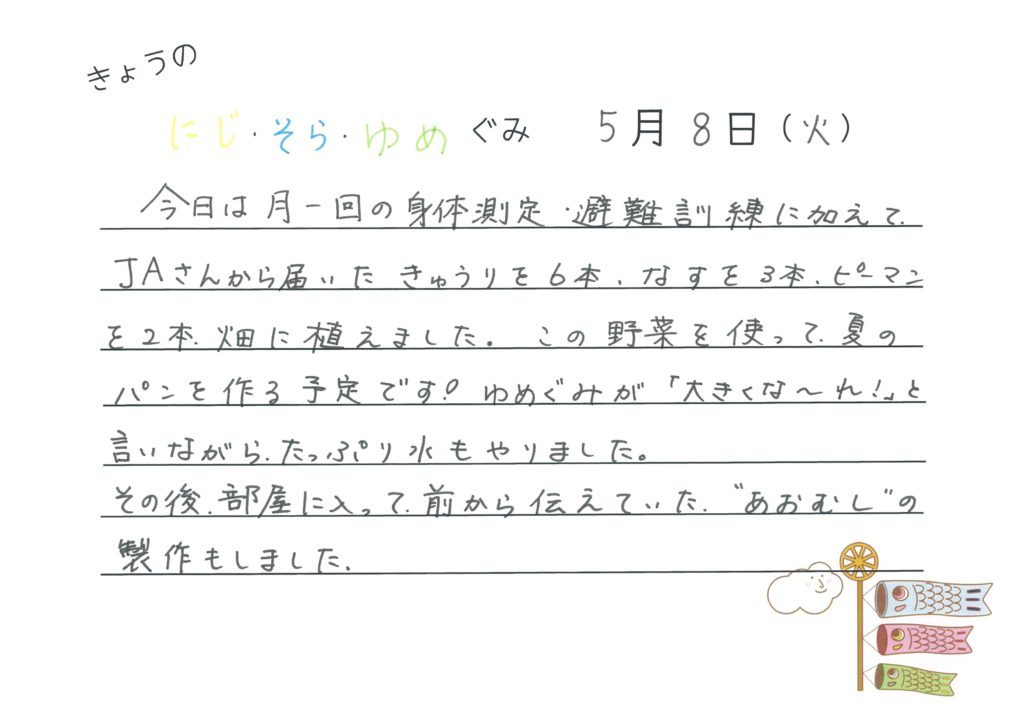 きょうの
にじ・そら・ゆめ ぐみ 5月8日(火)
今日は月一回の身体測定・避難訓練に加えて、
JAさんから届いた きゅうりを6本、なすを3本、ピーマン
を2本、畑に植えました。この野菜を使って、夏の
パンを作る予定です!ゆめぐみが「大きくな〜れ!」と
言いながら、たっぷり水もやりました。
その後、部屋に入って、前から伝えていた、“あおむし”の
製作もしました。